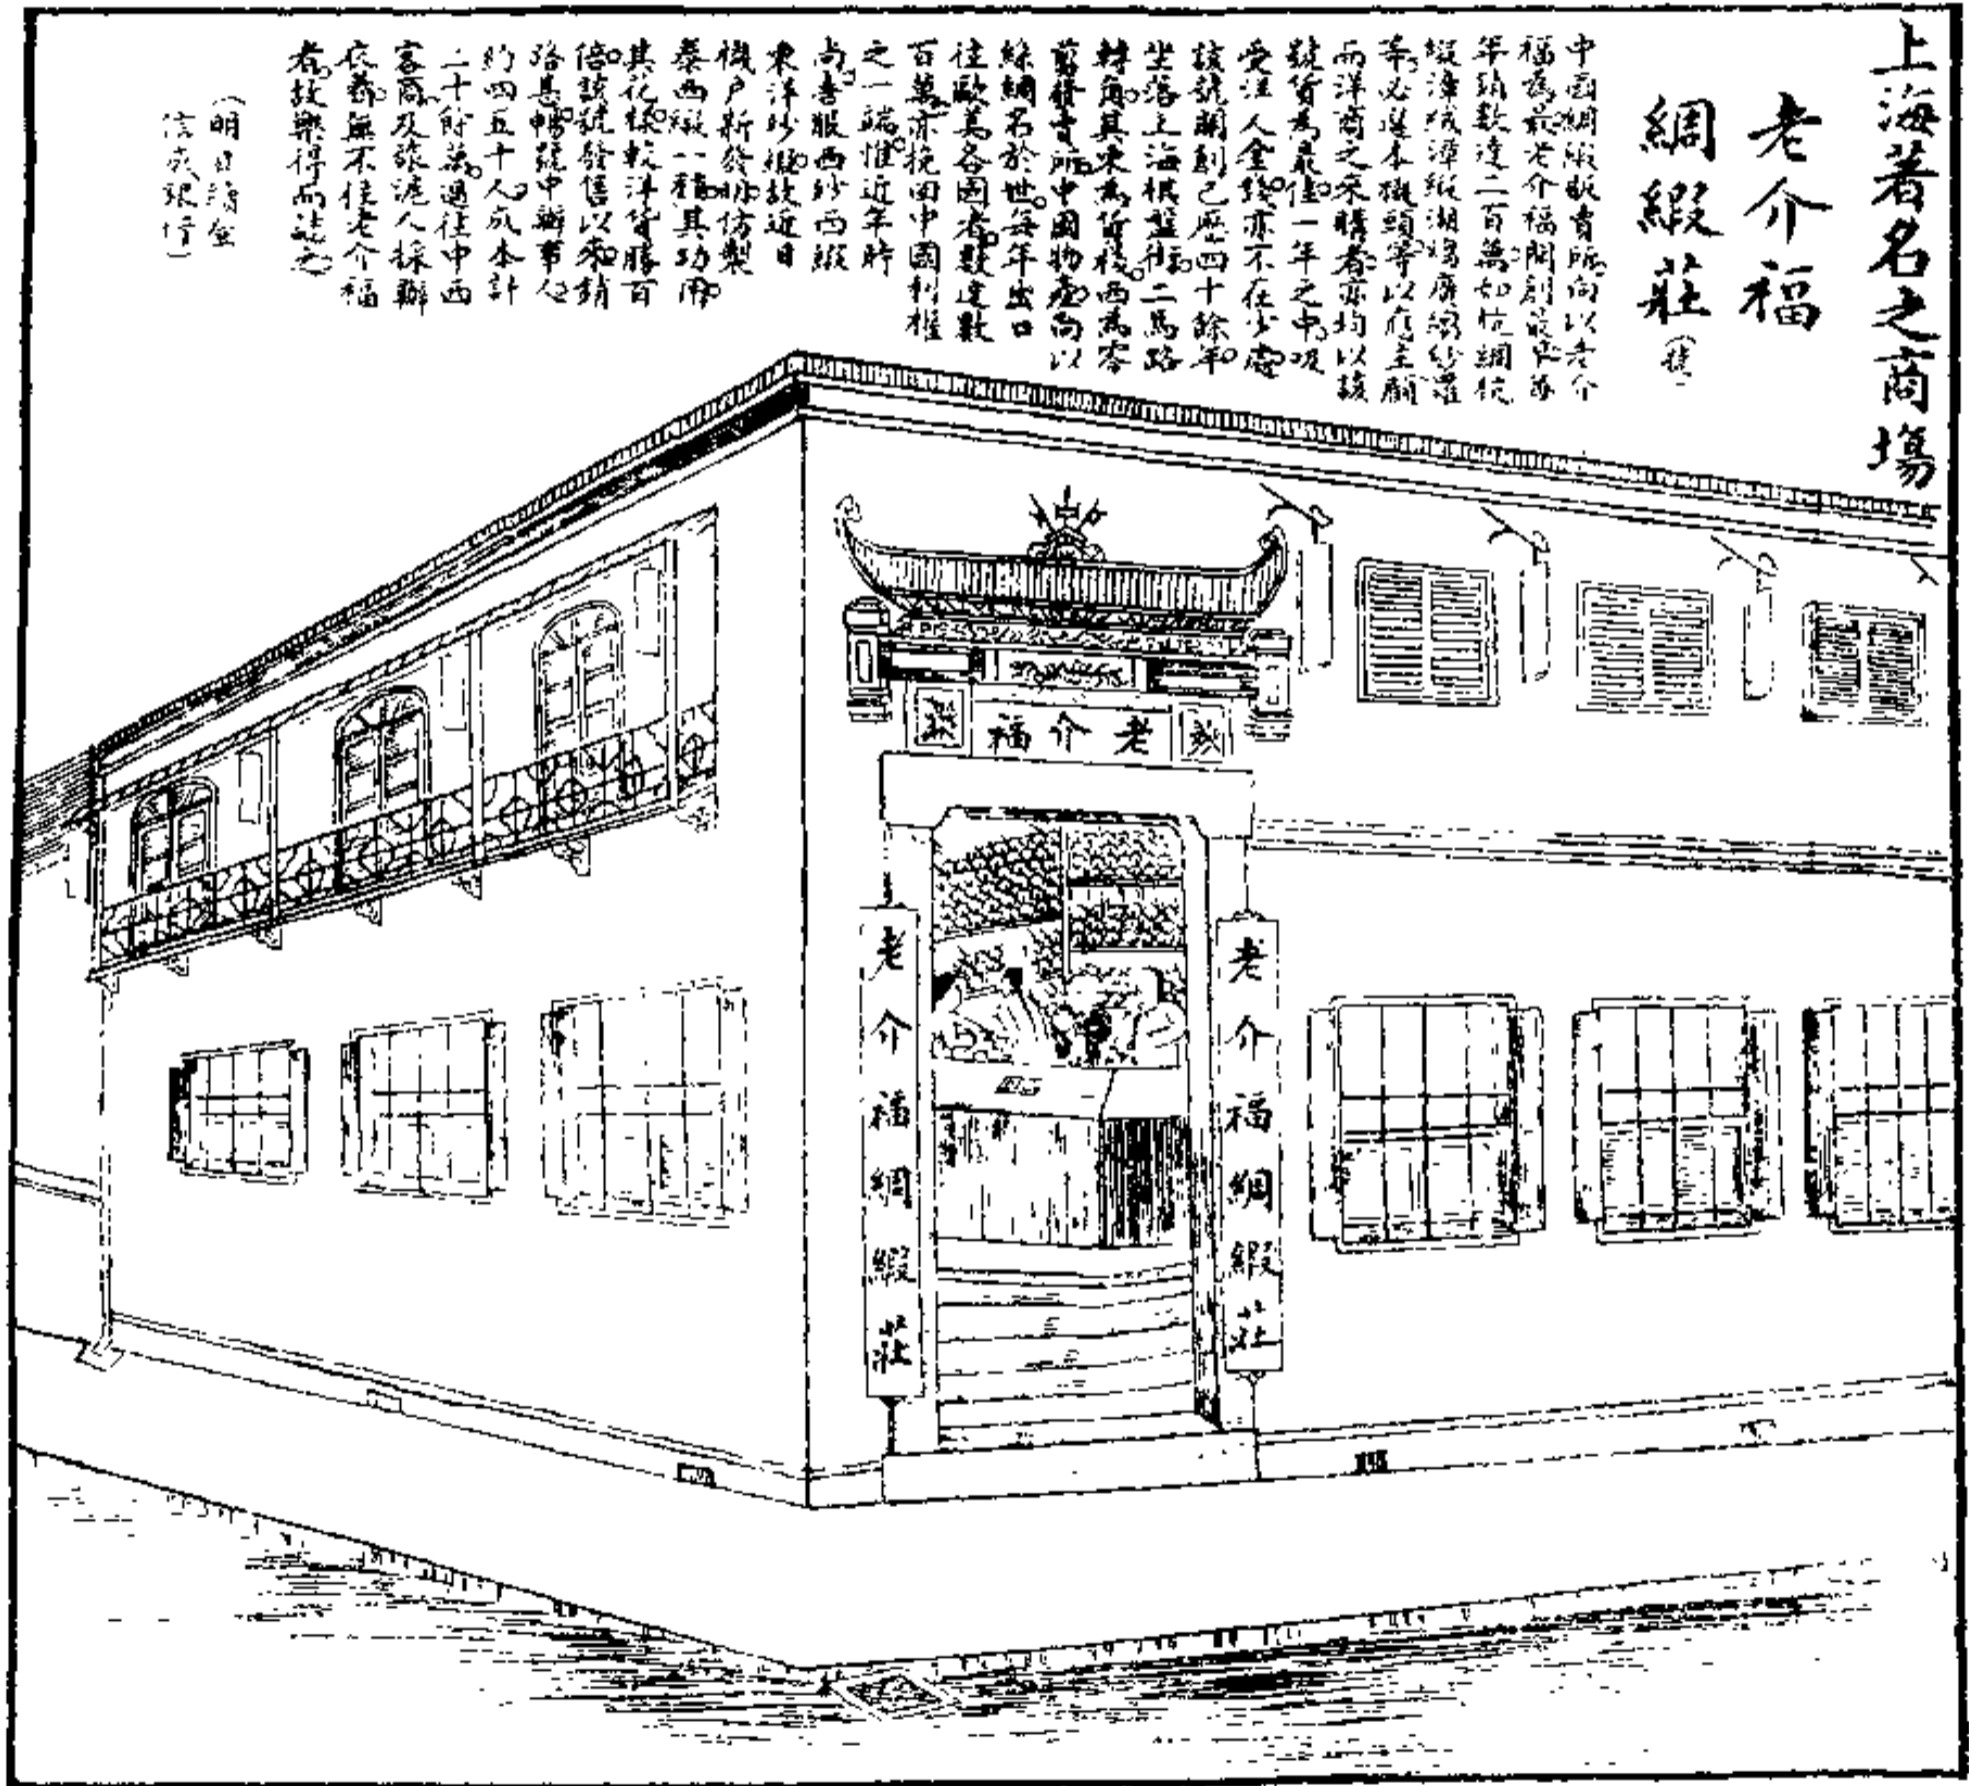 上海著名之商場
老介福
綢緞莊
中國綢緞販賣所向以老介
福為最老介福開創最早每
年銷數達二百萬如杭綢杭
緞漳絨漳緞湖縐廣綢紗羅
等必選本機頭等以應主顧
而洋商之來購者亦均以該
號貨為最佳一年之中吸
受洋人金錢亦不在少處
該號開創已歷四十餘年
坐落上海棋盤街二馬路
轉角其東為貨棧西為零
剪發賣所中國物產向以
絲綢名於世每年出口
往歐美各國者數達數
百萬亦挽回中國利權
之一端惟近年時
尚喜服西紗西緞
東洋紗緞故近日
機戶新發明仿製
泰西緞一種其功用
其花樣較洋貨勝百
倍該號發售以來銷
路甚暢號中辦事人
約四五十人成本計
二十餘萬過往中西
客商及旅滬人採辦
衣著無不往老介福
者故樂得而誌之
(明日續登
信成銀行)
老介福
老介福綢緞莊
老介福綢緞莊